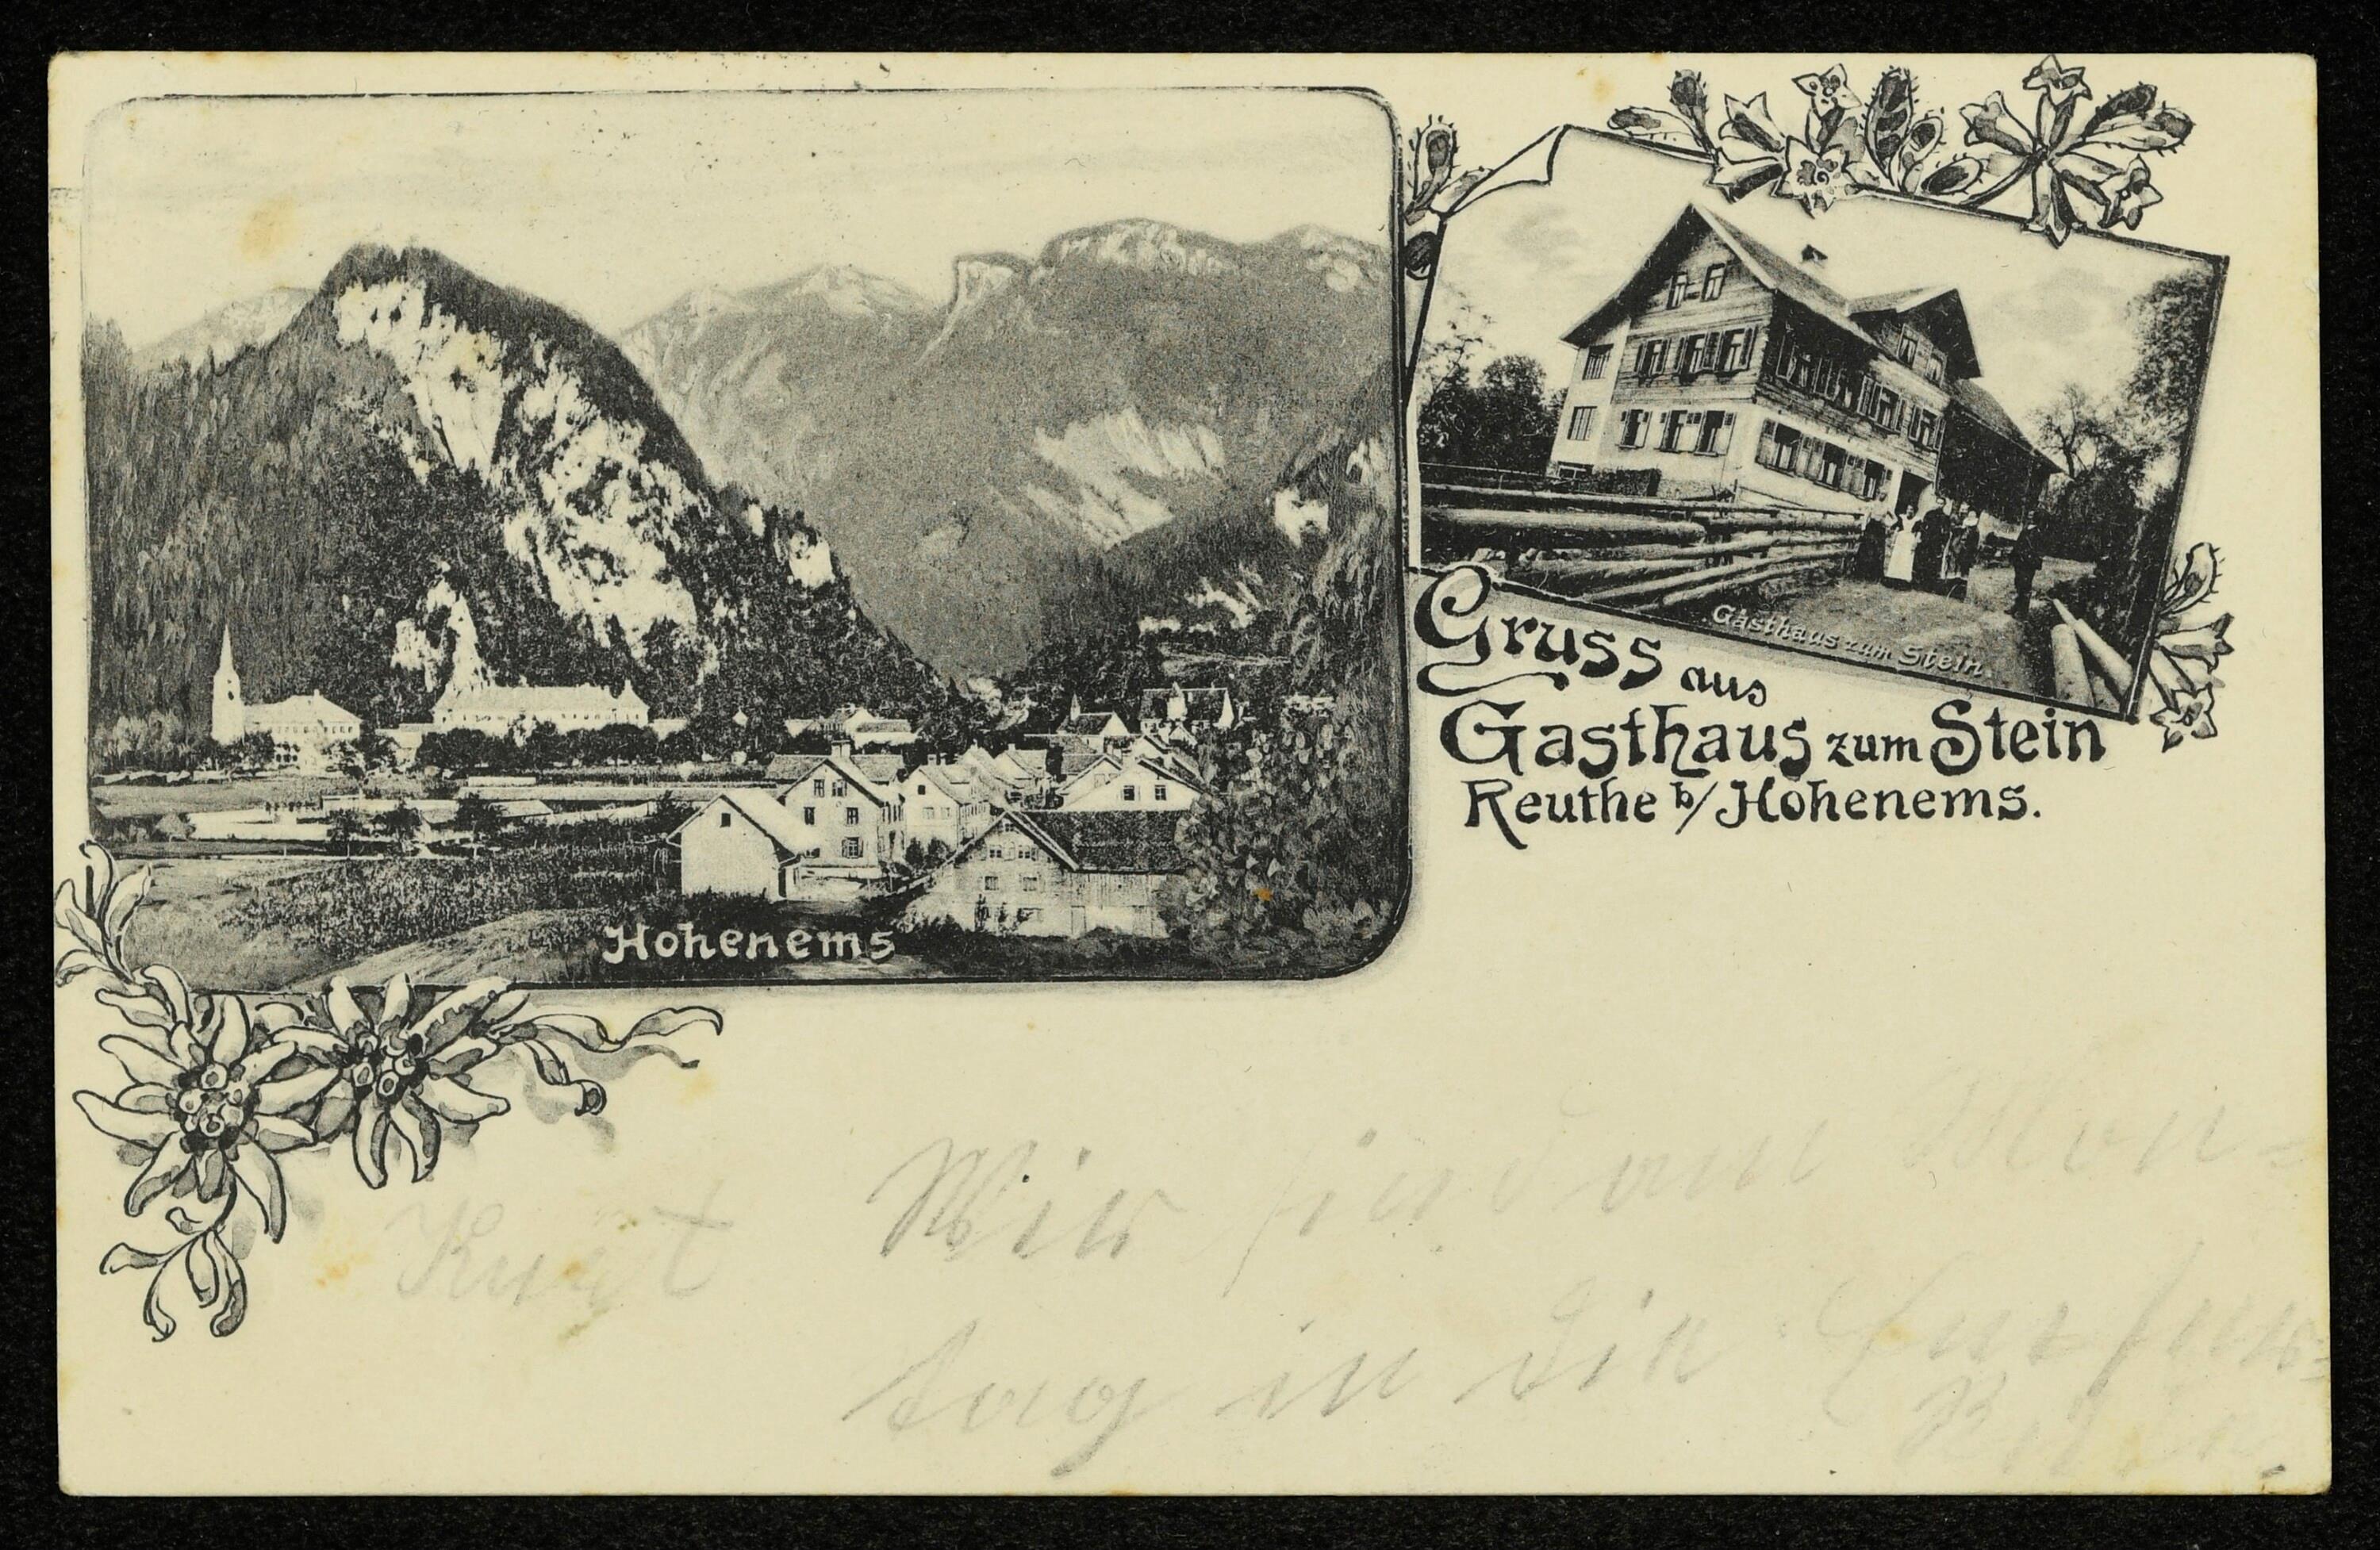 Hohenems
Gasthaus zum Stein.
Gruss aus
Gasthaus zum Stein
Reuthe b/Hohenems.
Wir sind am Mon=
tag in die